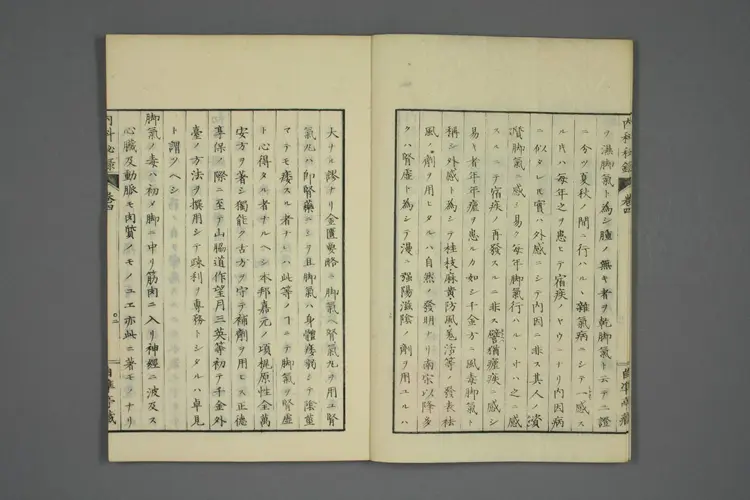 ヲ濕脚氣ト為シ腫ノ無キ者ヲ乾脚氣ト云テ二證
ニ分ツ夏秋ノ間ニ行ハルヽ雜氣病ニシテ一タヒ感ス
ル片ハ毎年之ヲ患ヒテ宿疾ノヤウニナリ内因病
ニ似タレ𪜈實ハ外感ニシテ内因ニ非ス其人ノ資
質脚氣ニ感シ易ク毎年脚氣行ハルヽトキハ之ニ感
スルニテ宿疾ノ再發スルニ非ス譬猶瘧疾ニ感シ
易キ者年年瘧ヲ患ルカ如シ千金方ニ風毒脚氣ト
稱シ外感ト為シテ桂枝麻黄防風羌活等ノ發表祛
風ノ劑ヲ用ヒタルハ自然ノ發明ナリ南宋以降多
クハ腎虚ト為シテ漫ニ強陽滋陰ノ劑ヲ用ユルハ
大ナル謬ナリ金匱要略ニ脚氣ヘ腎氣丸ヲ用ユ腎
氣丸ハ即腎藥ニシテ且脚氣ハ身體痿弱シテ陰莖
マテモ痿スル者ナレハ此等ノヿニテ脚氣ヲ腎虚
ト心得タル者ナルヘシ本邦嘉元ノ頃梶原性全萬
安方ヲ著シ獨能ク古方ヲ守テ補劑ヲ用ヒス正德
享保ノ際ニ至テ山脇道作望月三英等初テ千金外
臺ノ方法ヲ撰用シテ疎利ヲ專務トシタルハ卓見
ト謂ツヘシ
脚氣ノ毒ハ初メ脚ニ中リ筋肉ニ入リ神經ニ波及ス
心臓及動脈モ肉質ノモノユエ亦此ニ著モノナリ
内科秘錄
卷四
内科秘錄
卷四